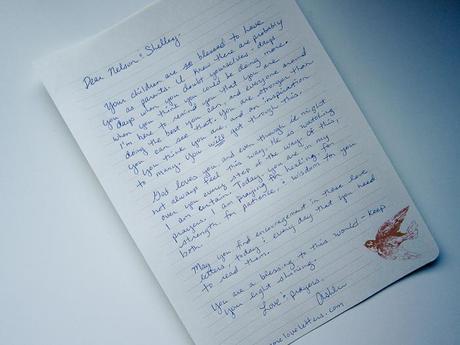 Dear Nelson & Shelley-
Your children are so blessed to have
you as parents. I know there are probably
days when you doubt yourselves - days
when you think you could be doing more.
I'm here to remind you that you are
doing the best you can, and everyone around
you can see that. You are stronger than
you think you are, and an inspiration
to many. You will get through this.
God loves you and even though it might
not always feel this way, He is watching
over you every step of the way. Of this,
I am certain. Today, you are in my
prayers. I am praying for healing, for
strength, for patience, & wisdom for you
both.
May you find encouragement in these love
letters, today & every day that you need
to read them.
You are a blessing to this world - keep
your light shining.
Love & prayers,
Ashley
loveletters.com